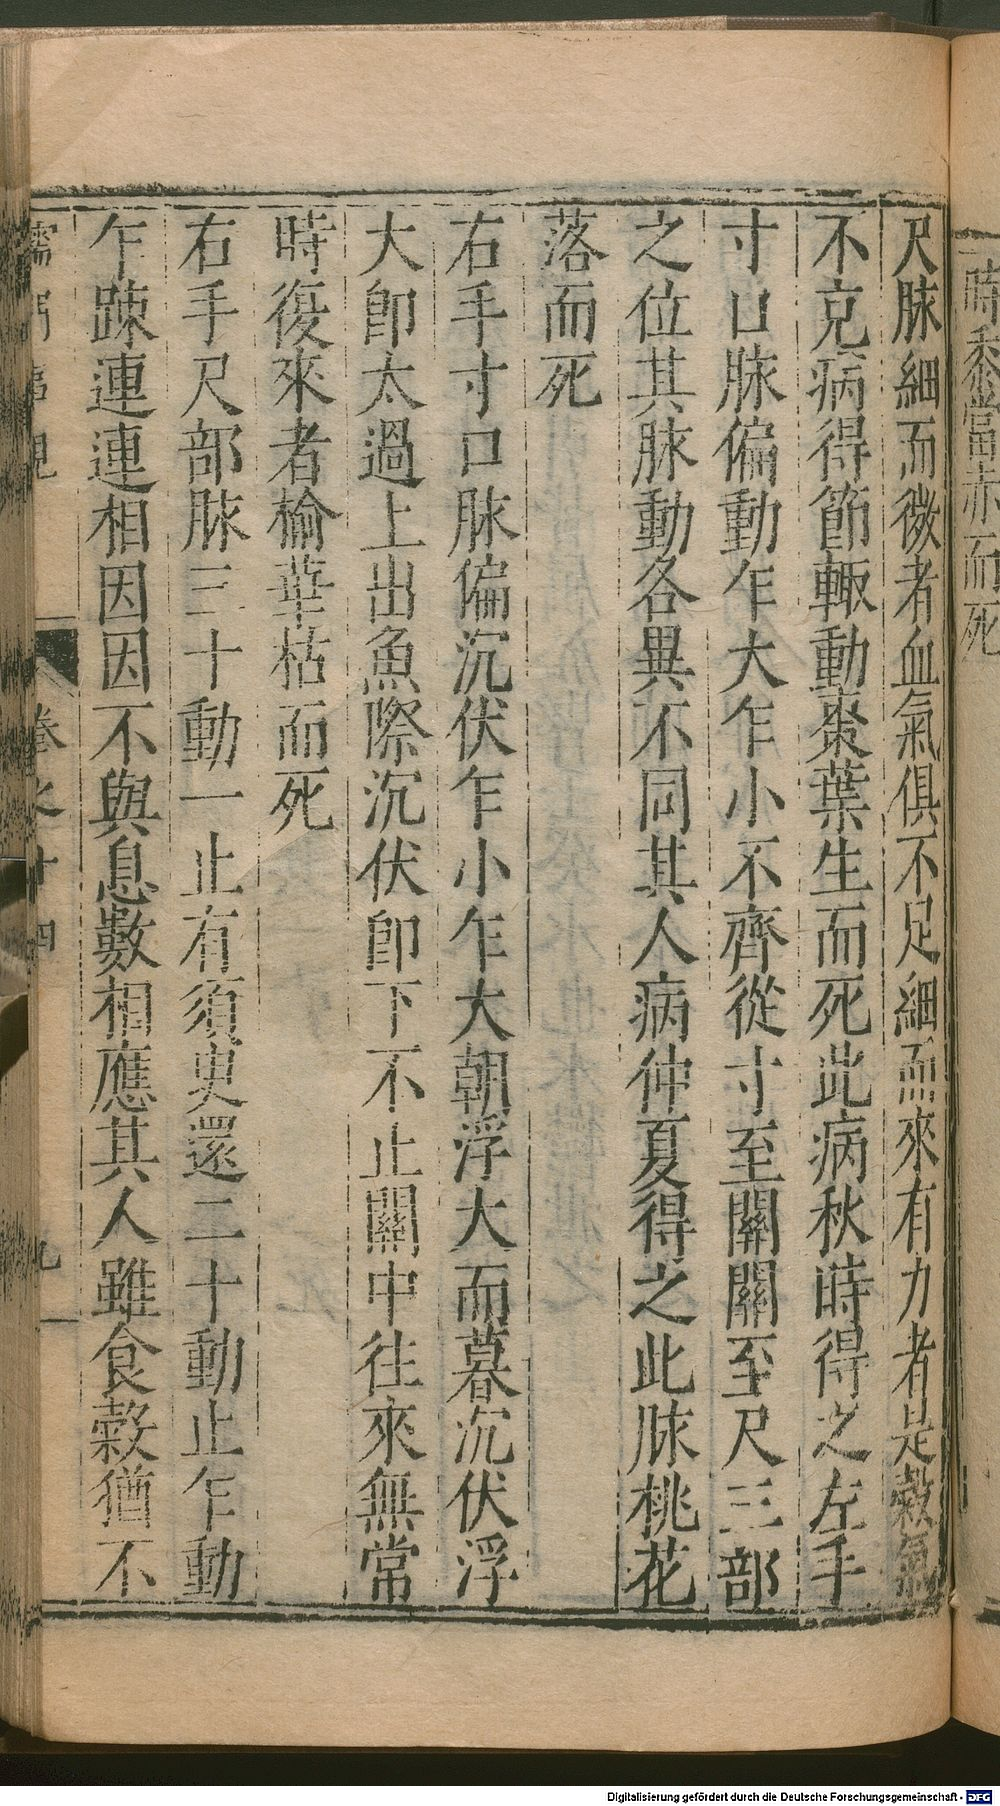 時黍當赤而死
尺脉細而微者血氣俱不足細而來有力者是穀氣
不克病得節輙動棗葉生而死此病秋時得之左手
寸口脉偏動乍大乍小不齊從寸至關關至尺三部
之位其脉動各異不同其人病仲夏得之此脉桃花
落而死
右手寸口脉偏沉伏乍小乍大朝浮大而暮沉伏浮
大卽太過上出魚際沉伏卽下不止關中往來無常
時復來者榆華枯而死
右手尺部脉三十動一止有須臾還二十動止乍動
乍踈連連相因因不與息數相應其人雖食穀猶不
卷之十四 九
Digitalisierung gefördert durch die Deutsche Forschungsgemeinschaft - DFG